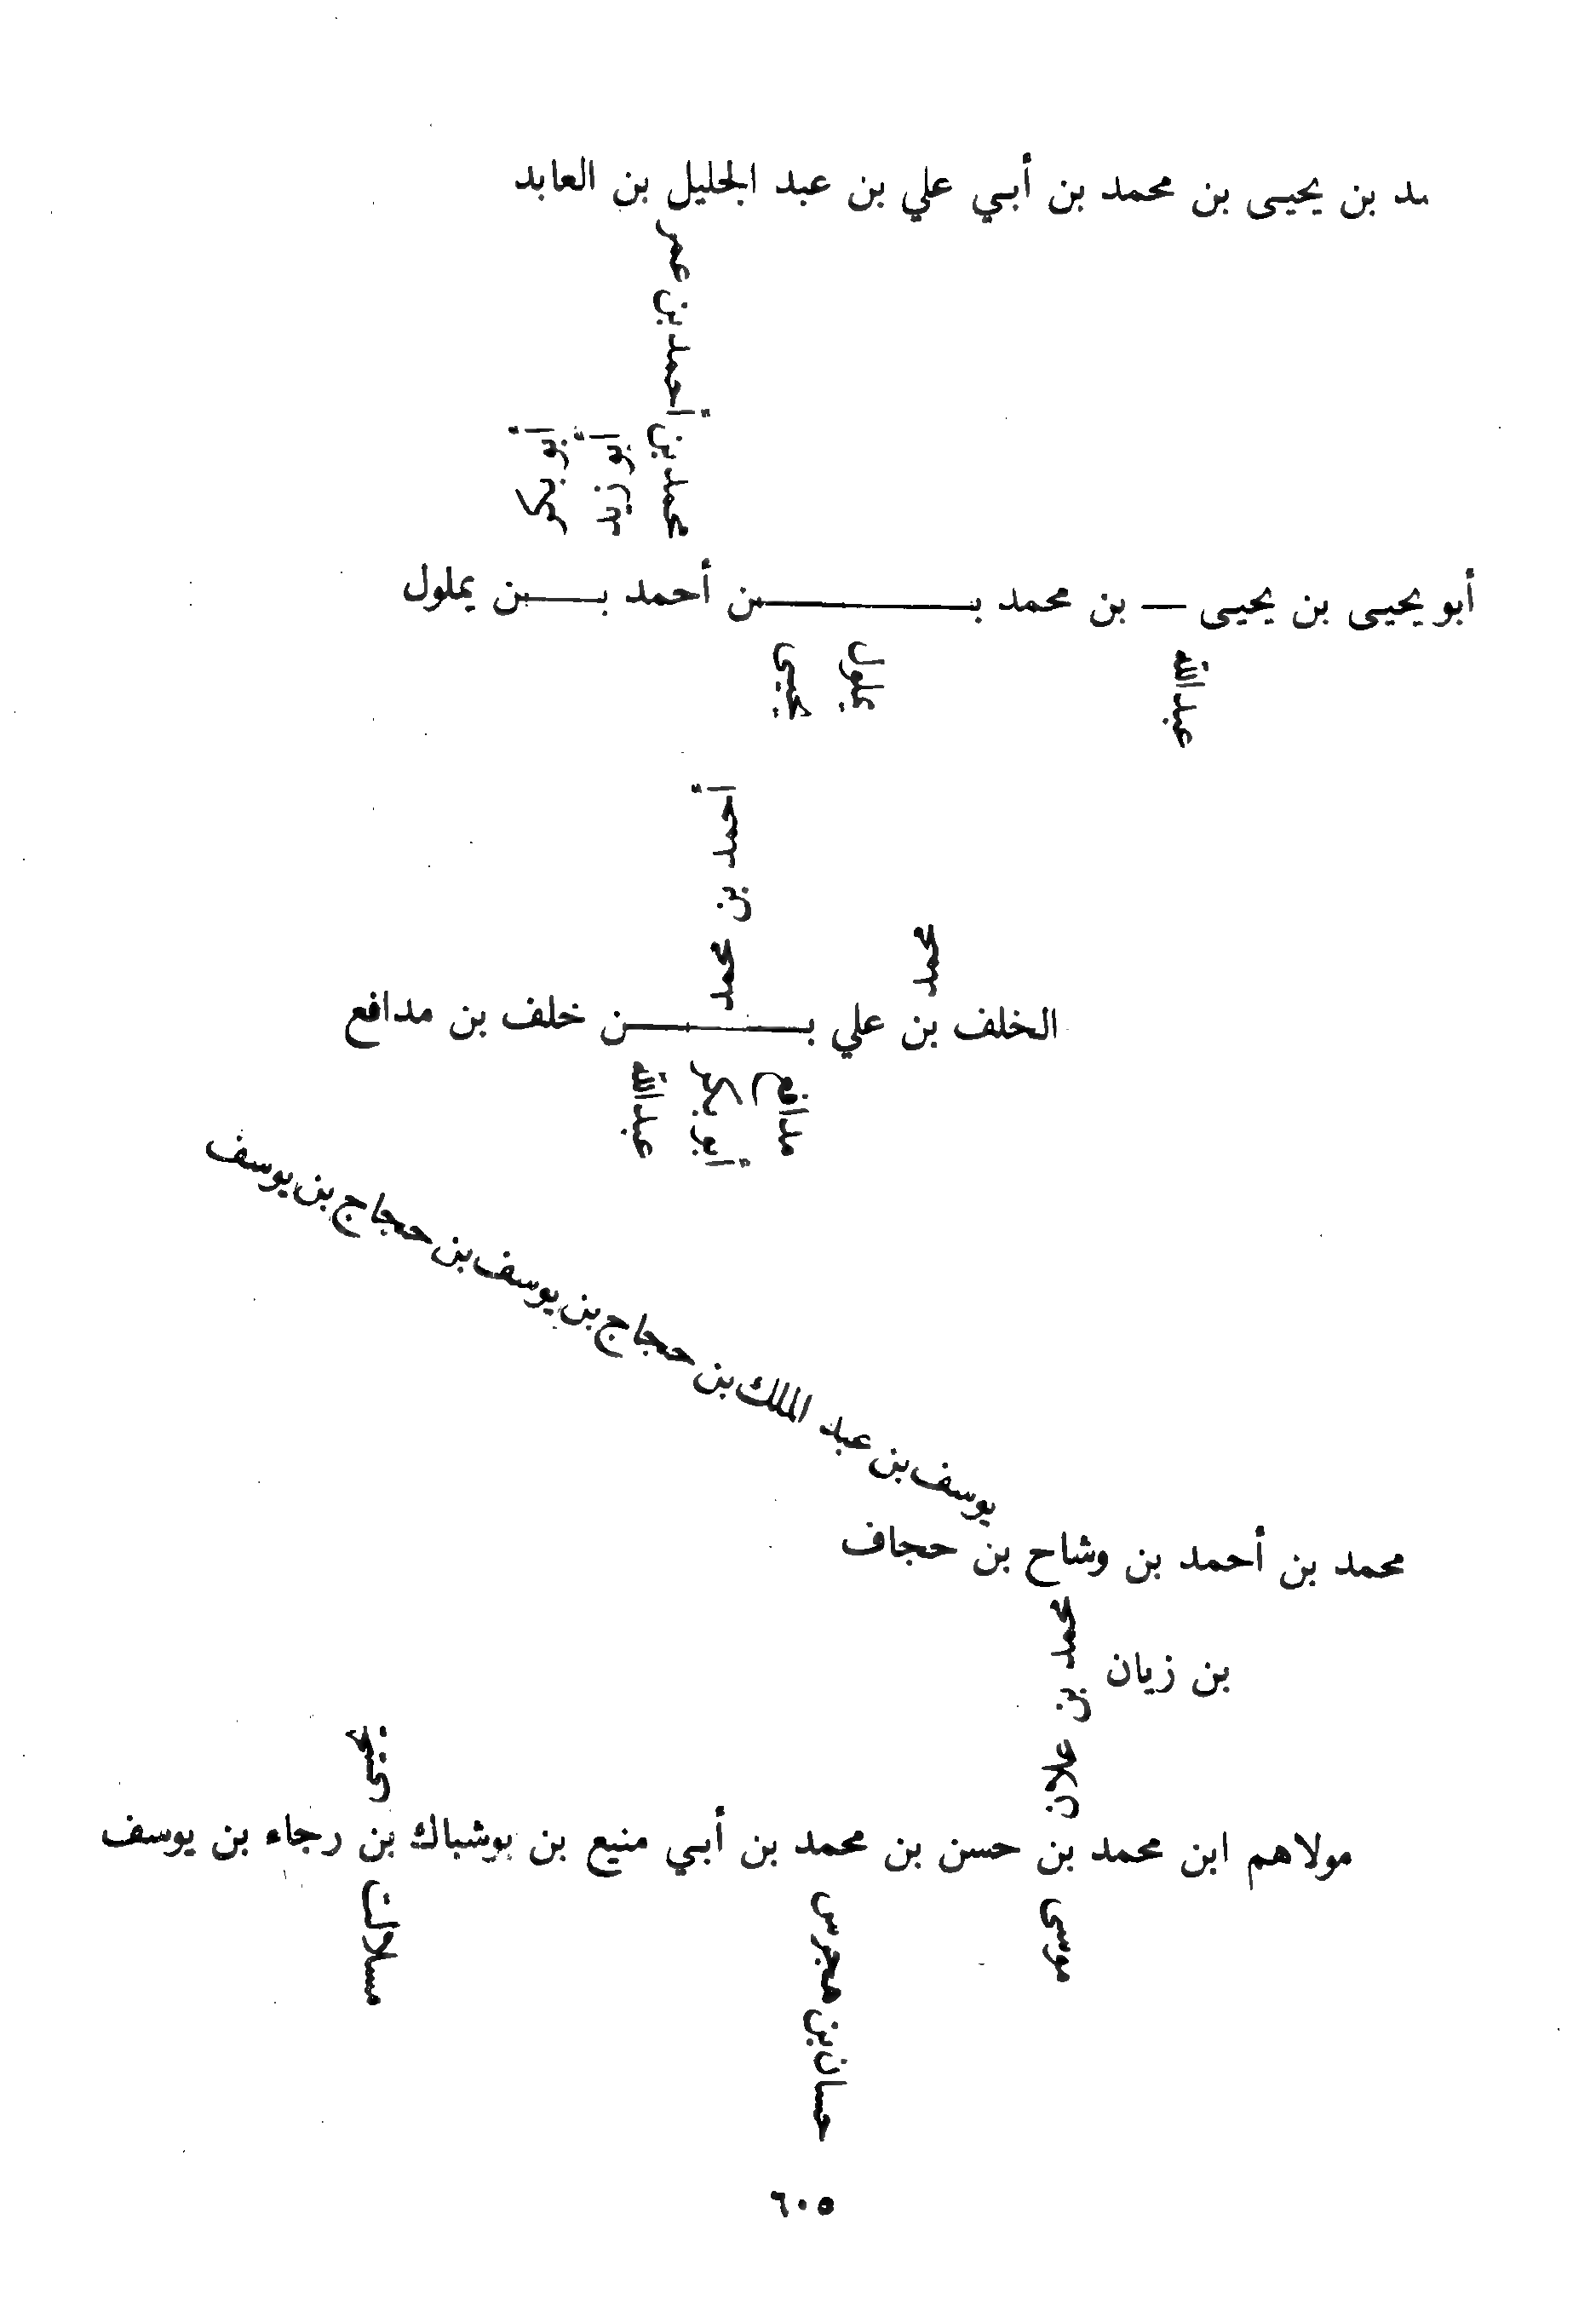 ـمد بن يحيى بن محمد بن أبي علي بن عبد الجليل بن العابد
محمد بن أحمد بن عمر
أبو يحيى بن يحيى — بن محمد بـــــن أحمد بـــن يملول
عبدالله
يملول
يحيى
أحمد بن محمد
محمد
الخلف بن علي بـــــن خلف بن مدافع
مدافع
أبو بكر
عبدالله
يوسف بن عبد الملك بن حجاج بن يوسف بن حجاج بن يوسف
محمد بن أحمد بن وشاح بن حجاف
بن زيان
محمد بن علان
مولاهم ابن محمد بن حسن بن محمد بن أبي منيع بن بوشباك بن رجاء بن يوسف
موسى
حسان بن هجرس
مسلالت
٦٠٥